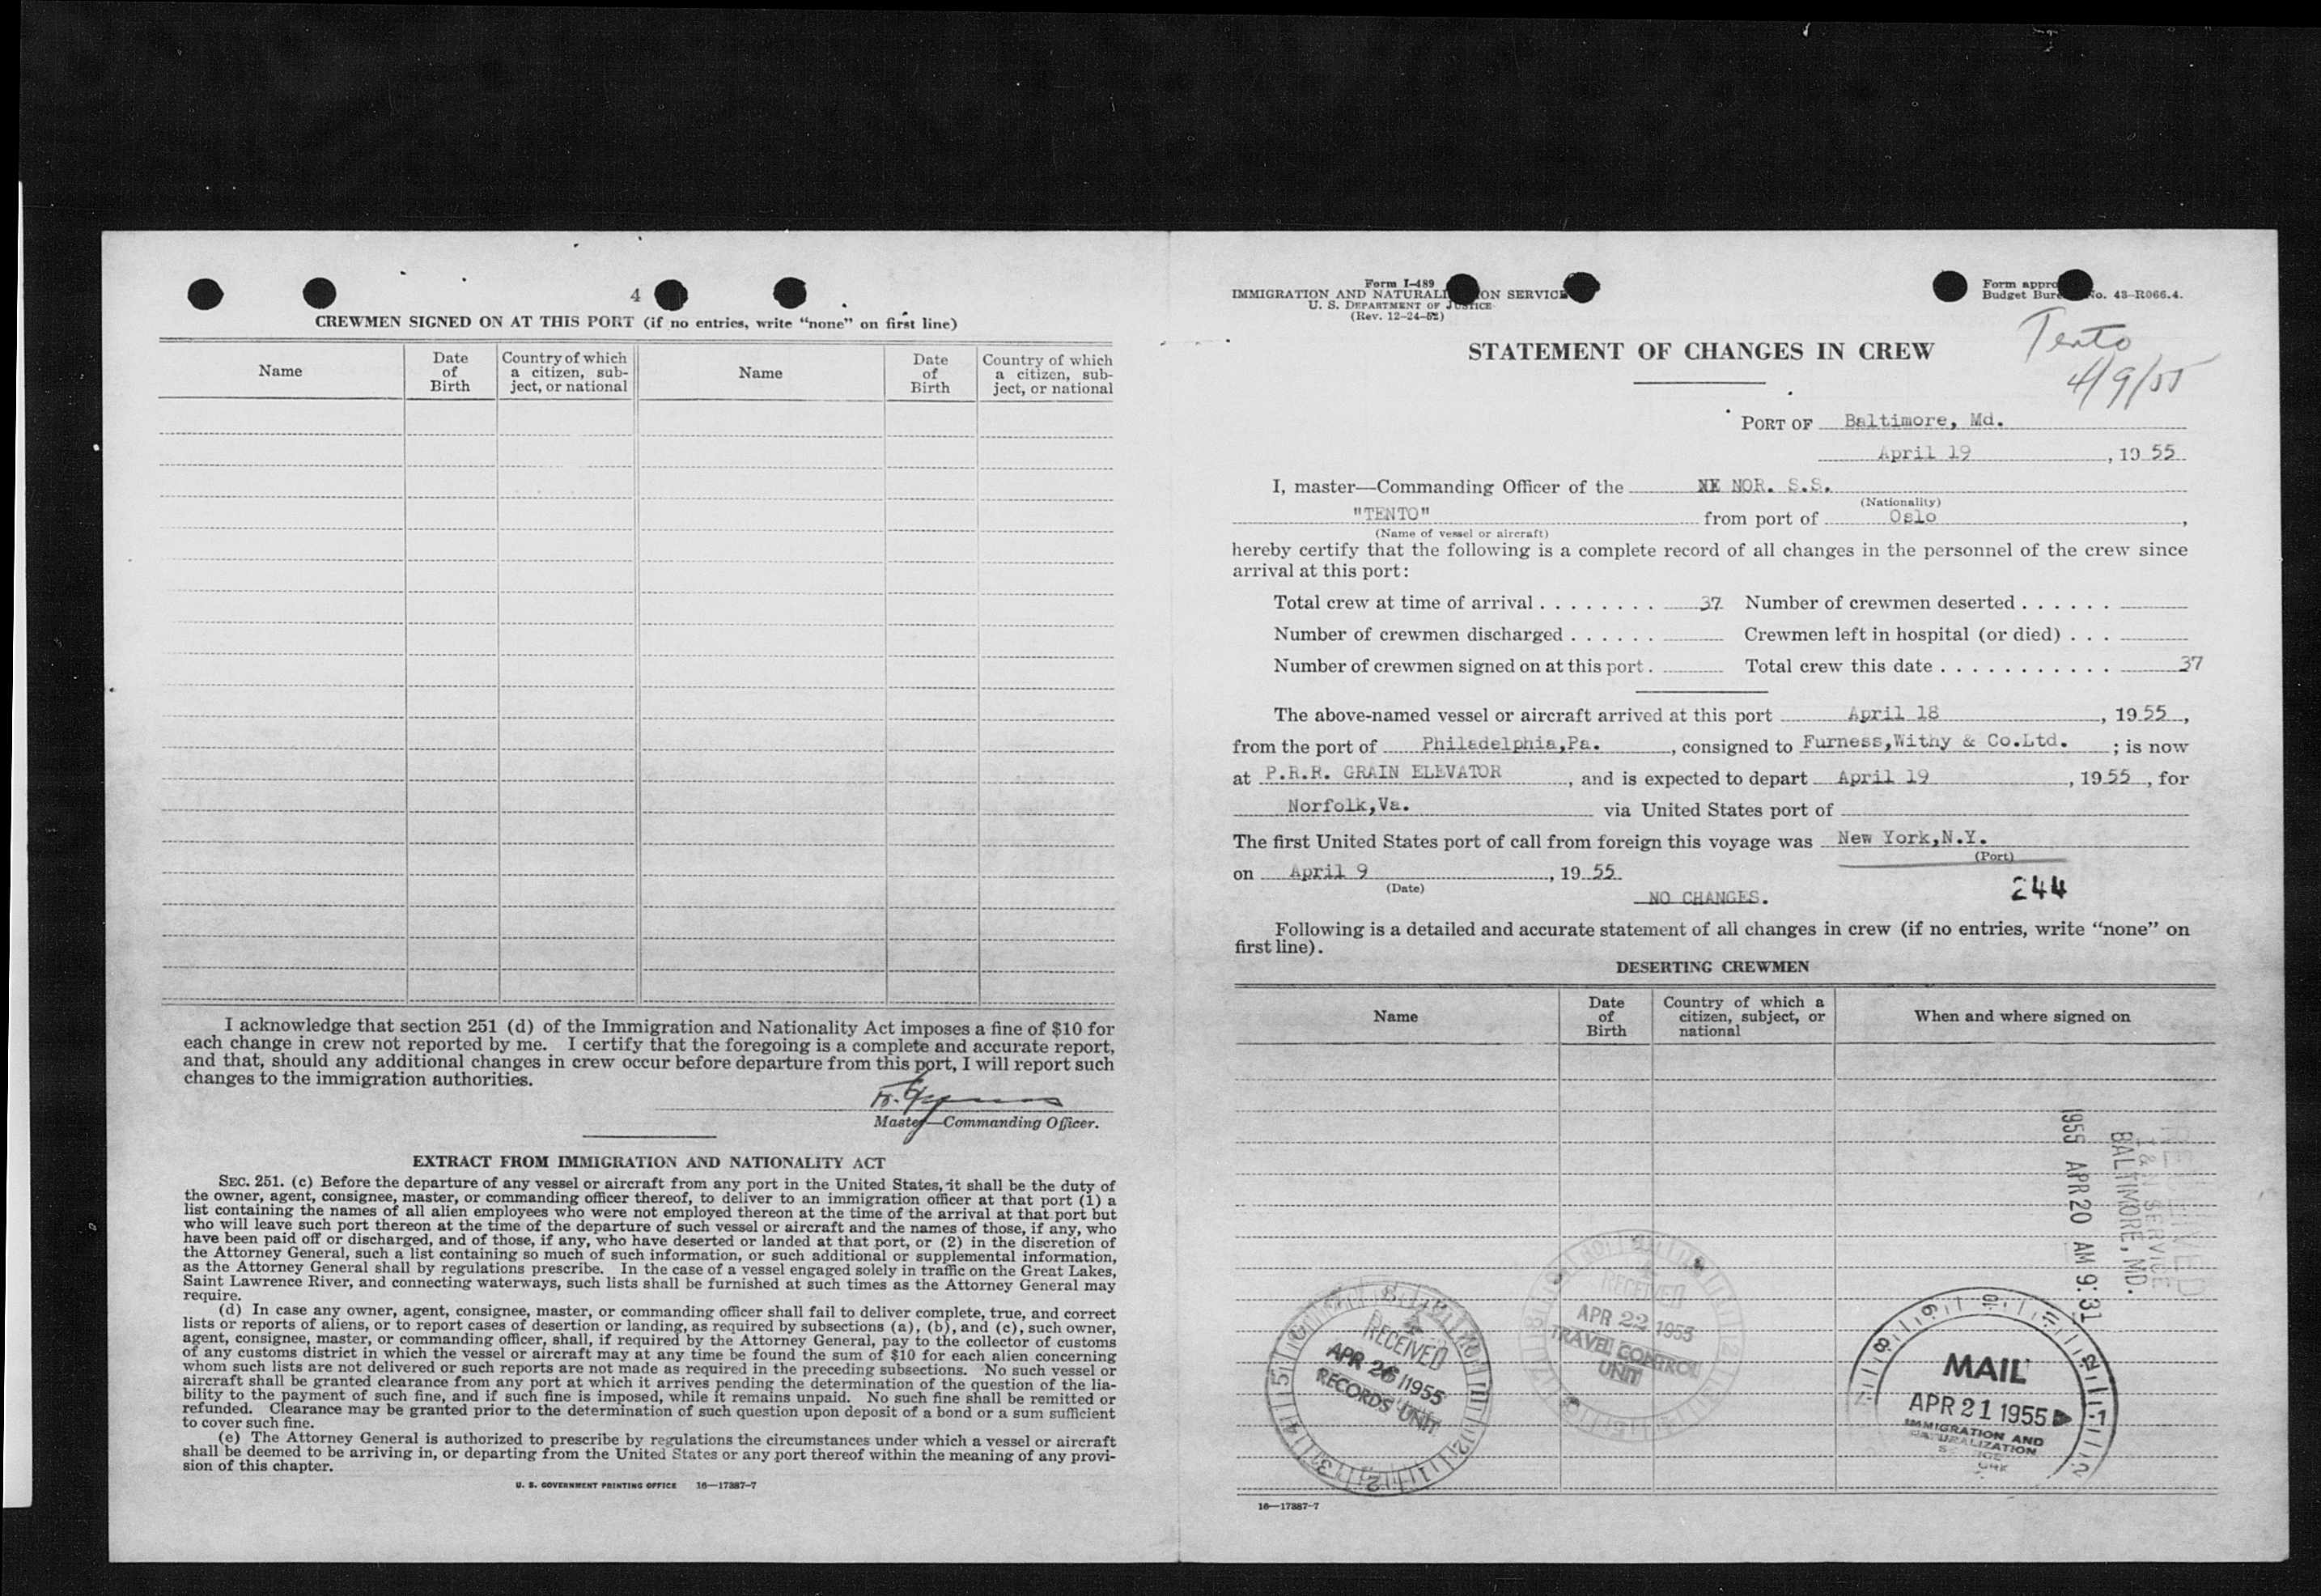 4
CREWMEN SIGNED ON AT THIS PORT (if no entries, write “none” on first line)
Name
Date of Birth
Country of which a citizen, subject, or national
Name
Date of Birth
Country of which a citizen, subject, or national
I acknowledge that section 251 (d) of the Immigration and Nationality Act imposes a fine of $10 for
each change in crew not reported by me. I certify that the foregoing is a complete and accurate report,
and that, should any additional changes in crew occur before departure from this port, I will report such
changes to the immigration authorities.
Master—Commanding Officer.
EXTRACT FROM IMMIGRATION AND NATIONALITY ACT
SEC. 251. (c) Before the departure of any vessel or aircraft from any port in the United States, it shall be the duty of
the owner, agent, consignee, master, or commanding officer thereof, to deliver to an immigration officer at that port (1) a
list containing the names of all alien employees who were not employed thereon at the time of the arrival at that port but
who will leave such port thereon at the time of the departure of such vessel or aircraft and the names of those, if any, who
have been paid off or discharged, and of those, if any, who have deserted or landed at that port, or (2) in the discretion of
the Attorney General, such a list containing so much of such information, or such additional or supplemental information,
as the Attorney General shall by regulations prescribe. In the case of a vessel engaged solely in traffic on the Great Lakes,
Saint Lawrence River, and connecting waterways, such lists shall be furnished at such times as the Attorney General may
require.
(d) In case any owner, agent, consignee, master, or commanding officer shall fail to deliver complete, true, and correct
lists or reports of aliens, or to report cases of desertion or landing, as required by subsections (a), (b), and (c), such owner,
agent, consignee, master, or commanding officer, shall, if required by the Attorney General, pay to the collector of customs
of any customs district in which the vessel or aircraft may at any time be found the sum of $10 for each alien concerning
whom such lists are not delivered or such reports are not made as required in the preceding subsections. No such vessel or
aircraft shall be granted clearance from any port at which it arrives pending the determination of the question of the lia-
bility to the payment of such fine, and if such fine is imposed, while it remains unpaid. No such fine shall be remitted or
refunded. Clearance may be granted prior to the determination of such question upon deposit of a bond or a sum sufficient
to cover such fine.
(e) The Attorney General is authorized to prescribe by regulations the circumstances under which a vessel or aircraft
shall be deemed to be arriving in, or departing from the United States or any port thereof within the meaning of any provi-
sion of this chapter.
U. S. GOVERNMENT PRINTING OFFICE 16—17387-7
Form I-489
IMMIGRATION AND NATURALI ON SERVICE
U. S. DEPARTMENT OF JUSTICE
(Rev. 12-24-52)
Form appro
Budget Bure No. 43-R066.4.
Tento
4/9/55
STATEMENT OF CHANGES IN CREW
PORT OF Baltimore, Md.
April 19, 19 55
I, master—Commanding Officer of the NOR. S.S.
(Nationality)
"TENTO" from port of Oslo,
(Name of vessel or aircraft)
hereby certify that the following is a complete record of all changes in the personnel of the crew since
arrival at this port:
Total crew at time of arrival . . . . . . . . 37 Number of crewmen deserted . . . . . .
Number of crewmen discharged . . . . . . Crewmen left in hospital (or died) . . .
Number of crewmen signed on at this port . Total crew this date . . . . . . . . . . . 37
The above-named vessel or aircraft arrived at this port April 18, 19 55,
from the port of Philadelphia,Pa., consigned to Furness,Withy & Co.Ltd. ; is now
at P.R.R. GRAIN ELEVATOR, and is expected to depart April 19, 19 55, for
Norfolk,Va. via United States port of
The first United States port of call from foreign this voyage was New York,N.Y.
(Port)
on April 9, 19 55
(Date)
244
NO CHANGES.
Following is a detailed and accurate statement of all changes in crew (if no entries, write “none” on
first line).
DESERTING CREWMEN
Name
Date of Birth
Country of which a citizen, subject, or national
When and where signed on
RECEIVED
I & N SERVICE
BALTIMORE, MD.
1955 APR 20 AM 9:31
RECEIVED
APR 26 1955
RECORDS UNIT
RECEIVED
APR 22 1955
TRAVEL CONTROL
UNIT
MAIL
APR 21 1955
IMMIGRATION AND
NATURALIZATION
16—17387-7